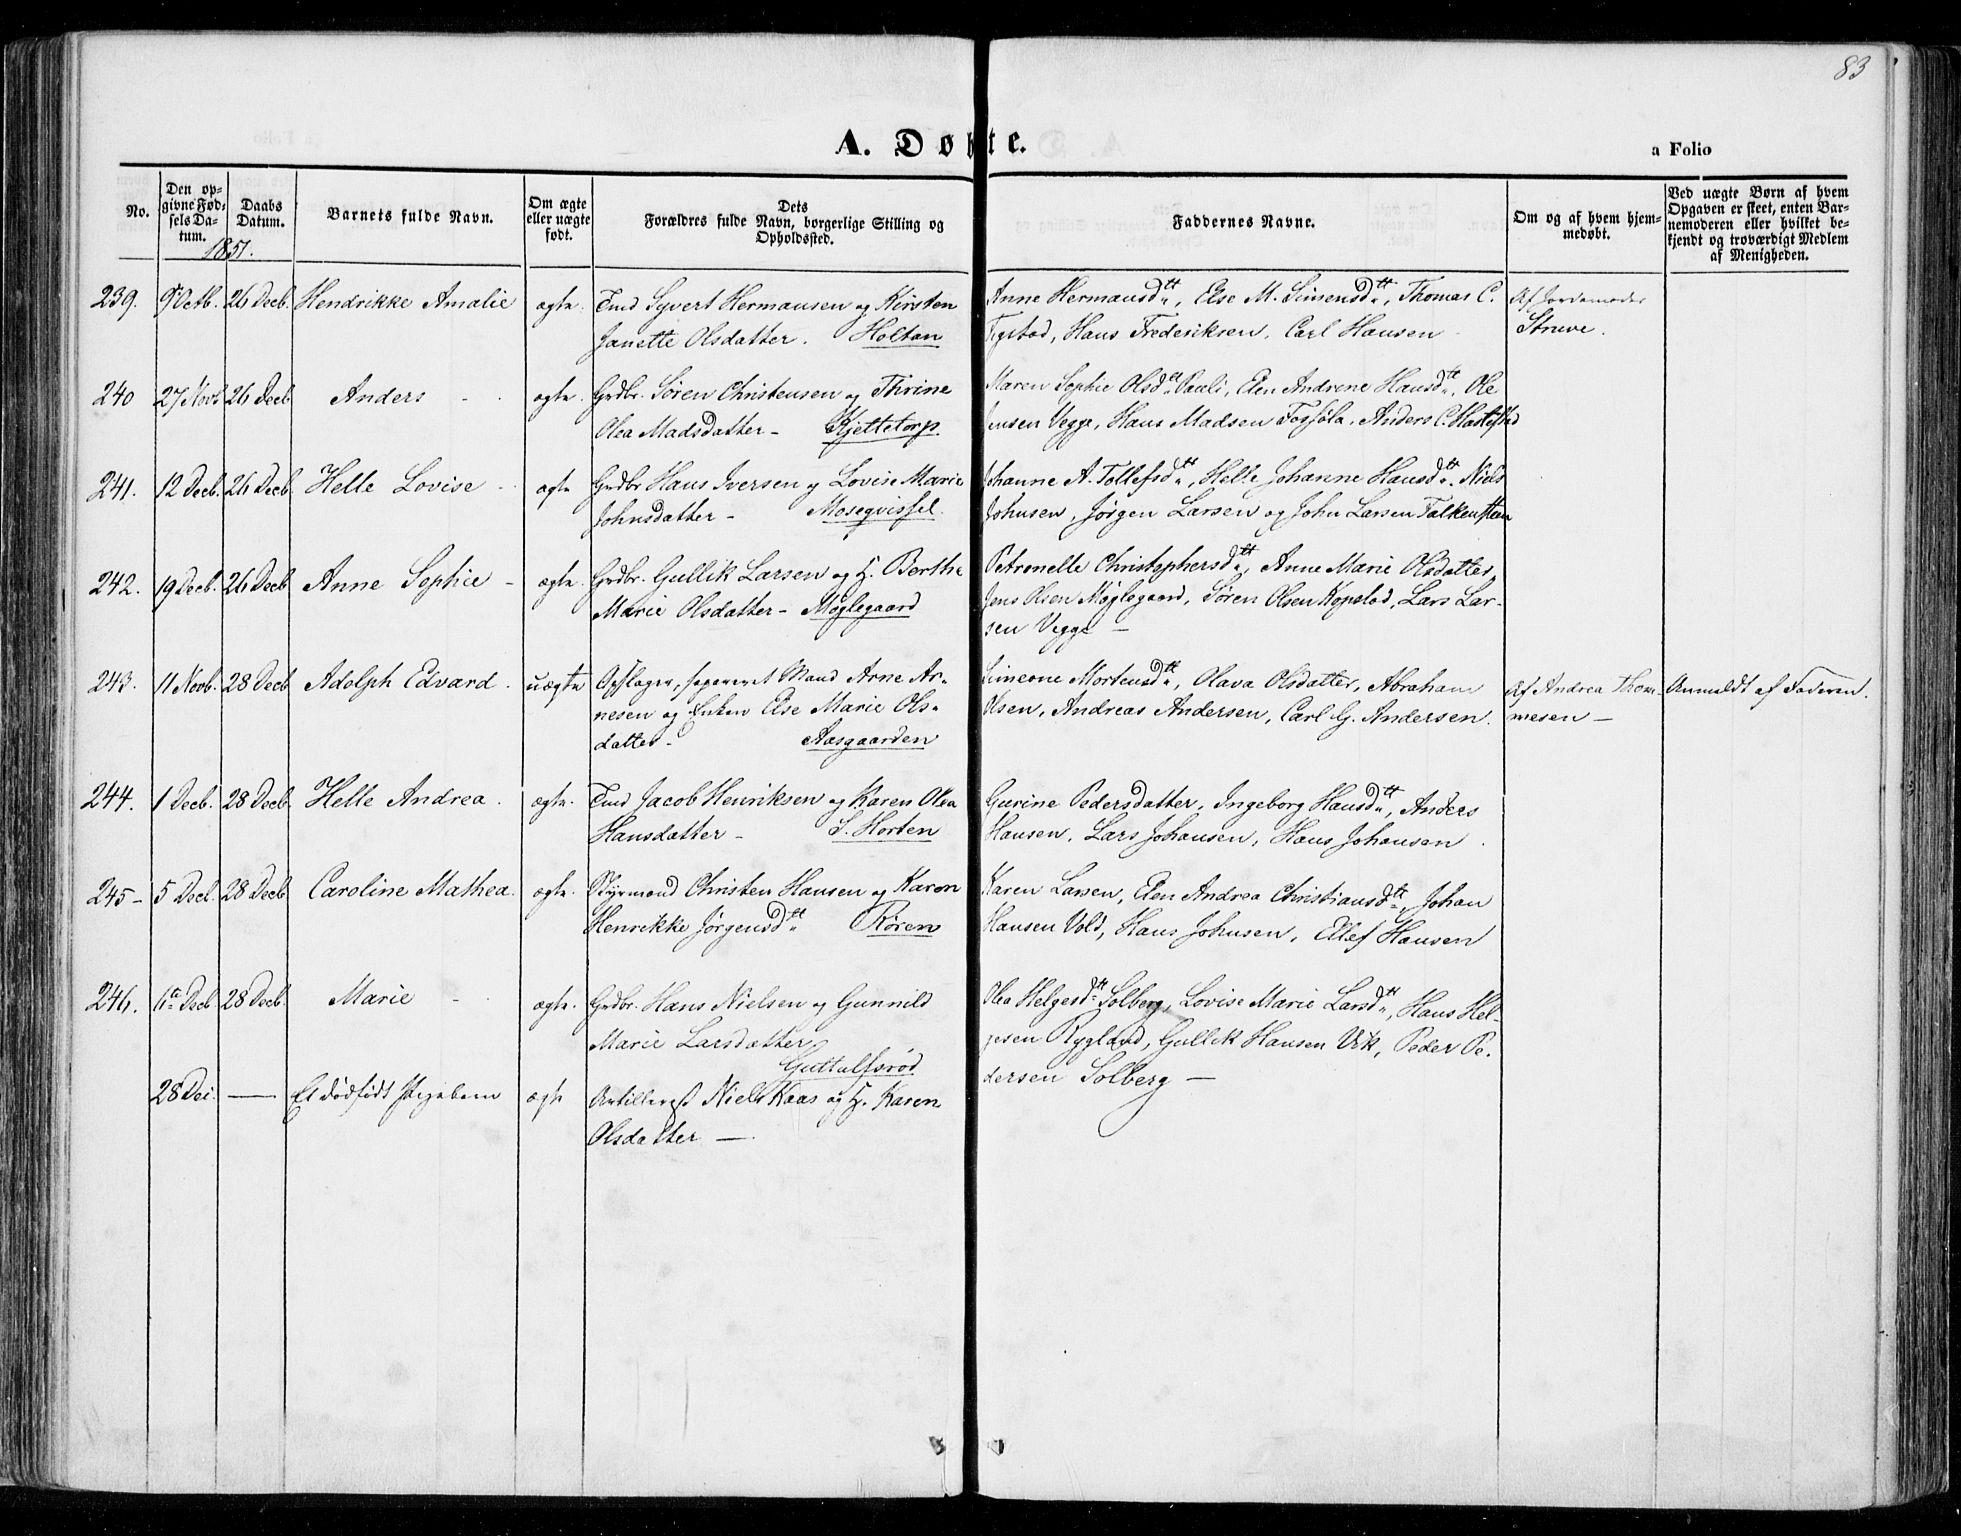 83
A. Døbte.
a Folio
No.
Den op-
givne Fød-
sels Da-
tum.
Daabs
Datum.
Barnets fulde Navn.
Om ægte
eller uægte
født.
Dets
Forældres fulde Navn, borgerlige Stilling og
Opholdssted.
Faddernes Navne.
Om og af hvem hjem-
medøbt.
Ved uægte Børn af hvem
Opgaven er skeet, enten Bar-
nemoderen eller hvilket be-
kjendt og troværdigt Medlem
af Menigheden.
1851.
239. 9 Octb. 26 Decb. Hendrikke Amalie ægte. Tmd Syvert Hermansen og Kirsten
Janette Olsdatter. Holtan
Anne Hermansdtt, Else M. Simensdtt, Thomas C.
Tystad, Hans Frederiksen, Carl Hansen
Af Jordemoder
Struve.
240 27 Novb 26 Decb Anders - ægte. Grdbr. Søren Christensen og Thrine
Olea Madsdatter - Kjettetorp.
Maren Sophie Olsdtt Pauli, Elen Andrene Hansdtt, Ole
Jensen Vegge, Hans Madsen Fogsøla, Anders C.
241. 12 Decb. 26 Decb Helle Lovise - ægte Grdbr Hans Iversen og Lovise Marie
Johnsdatter - Moseqvissel.
Johanne A. Tollefsdtt, Helle Johanne Hansdtt, Niels
Johnsen, Jørgen Larsen og John Larsen Falkensten
242. 19 Decb. 26 Decb Anne Sophie - ægte. Grdbr. Gullik Larsen og H. Berthe
Marie Olsdatter - Møglegaard
Petronelle Christophersdtt, Anne Marie Olsdatter,
Jens Olsen Møglegaard, Søren Olsen Kopstad, Lars Lar-
sen Vegge -
243. 11 Novb. 28 Decb Adolph Edvard. uægte Opslager, separeret Mand Arne Ar-
nesen og Enken Else Marie Ols-
datter - Aasgaarden
Simeone Mortensdtt, Olava Olsdatter, Abraham
Olsen, Andreas Andersen, Carl G. Andersen.
Af Andrea Thom-
mesen -
Anmeldt af Faderen.
244. 1 Decb. 28 Decb. Helle Andrea. ægte. Tmd Jacob Henriksen og Karen Olea
Hansdatter - S. Horten
Gurine Pedersdatter, Ingeborg Hansdtt, Anders
Hansen, Lars Johansen, Hans Johansen.
245- 5 Decb. 28 Decb. Caroline Mathea. ægte. Styrmand Christen Hansen og Karen
Henrikke Jørgensdtt Røren
Karen Larsen, Elen Andrea Christiansdtt, Johan
Hansen Vold, Hans Johnsen, Ellef Hansen
246. 6te Decb 28 Decb. Marie - ægte. Grdbr. Hans Nielsen og Gunnild
Marie Larsdatter
Guttulfsrød
Olea Helgesdtt Solberg, Lovise Marie Larsdtt, Hans Hel-
gesen Rygland, Gullik Hansen Vik, Peder Pe-
dersen Solberg -
28 Dec. — Et dødfødt Pigebarn ægte Artillerist Niels Kaas og H. Karen
Olsdatter —